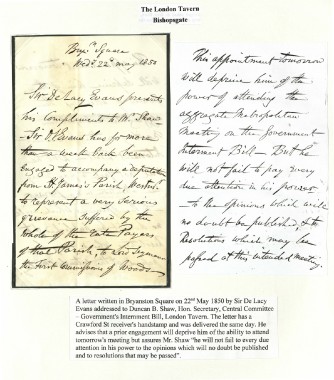 The London Tavern
Bishopsgate
Bryn Square
Wedy 22nd May 1850
Sir De Lacy Evans presents
his Compliments to Mr Shaw
Sir D. Evans has for more
than a week back been
engaged to accompany a deputation
from St James's Parish, Westmr
to represent a very serious
grievance suffered by the
whole of the Rate Payers
of that Parish, to Lord Seymour
the Chief Commissioner of Woods
This appointment tomorrow
will deprive him of the
power of attending the
aggregate Metropolitan
Meeting on the Government
Interment Bill - But he
will not fail to pay every
due attention in his power
to the opinions which will
no doubt be published, & to
Resolutions which may be
passed at this intended meeting.
A letter written in Bryanston Square on 22nd May 1850 by Sir De Lacy
Evans addressed to Duncan B. Shaw, Hon. Secretary, Central Committee
– Government's Internment Bill, London Tavern. The letter has a
Crawford St receiver's handstamp and was delivered the same day. He
advises that a prior engagement will deprive him of the ability to attend
tomorrow's meeting but assures Mr. Shaw "he will not fail to every due
attention in his power to the opinions which will no doubt be published
and to resolutions that may be passed".